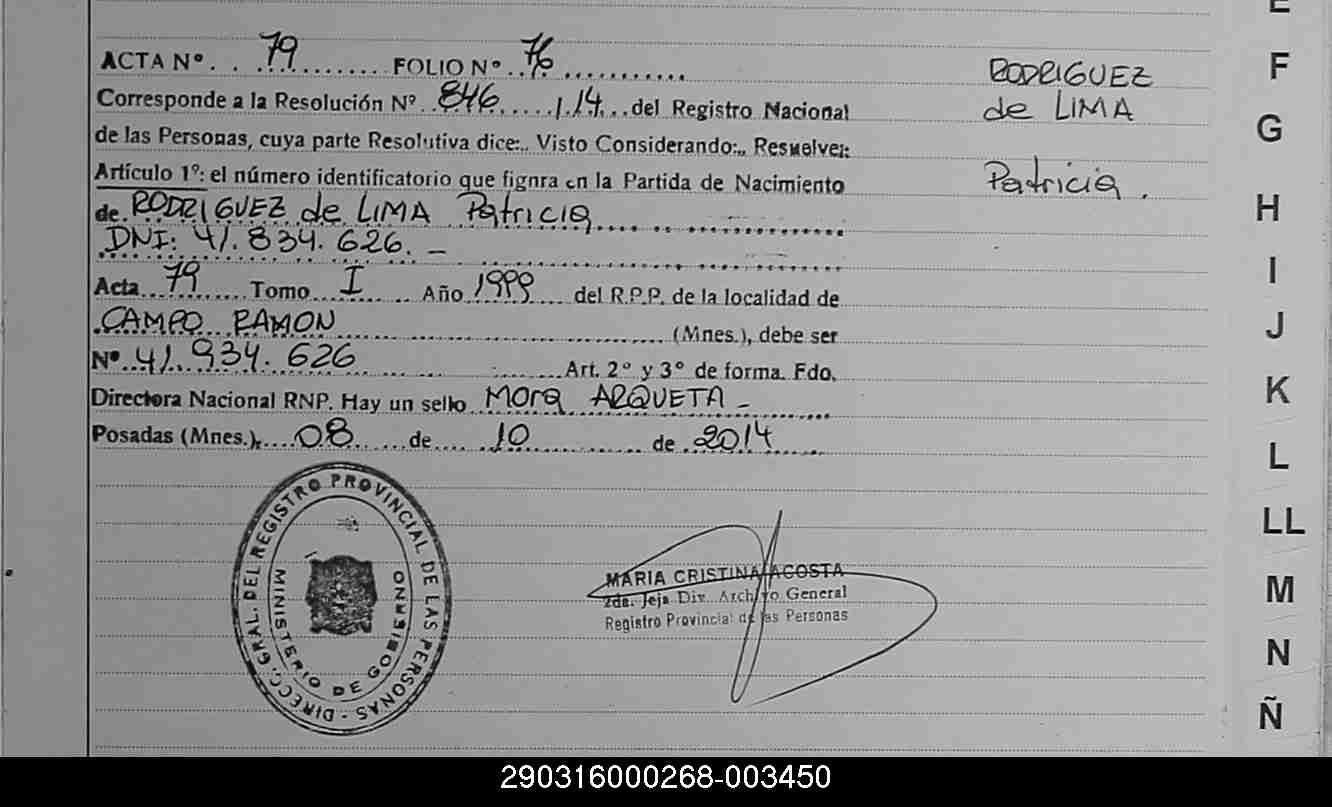 E
ACTA Nº 79 FOLIO Nº 76
RODRIGUEZ
F
Corresponde a la Resolución Nº 846 /14 del Registro Nacional
de LIMA
G
de las Personas, cuya parte Resolutiva dice:,, Visto Considerando:,, Resuelve:
Artículo 1º: el número identificatorio que figura en la Partida de Nacimiento
Patricia.
de RODRIGUEZ de LIMA Patricia
H
DNI: 41.834.626.-
Acta 79 Tomo I Año 1999 del R.P.P. de la localidad de
I
CAMPO RAMON (Mnes.), debe ser
J
Nº 41.934.626 Art. 2º y 3º de forma. Fdo.
Directora Nacional RNP. Hay un sello Mora ARQUETA -
K
Posadas (Mnes.), 08 de 10 de 2014
L
LL
M
N
Ñ
DIRECC. GRAL. DEL REGISTRO PROVINCIAL DE LAS PERSONAS -
MINISTERIO DE GOBIERNO
MARIA CRISTINA ACOSTA
2da. Jefa Div. Archivo General
Registro Provincial de las Personas
290316000268-003450